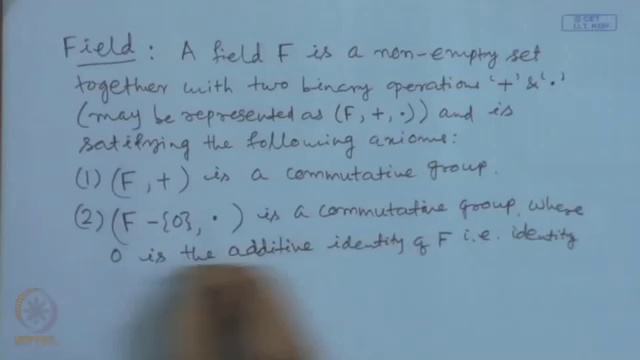 © CET
I.I.T. KGP
Field : A field F is a non-empty set
together with two binary operations '+' & '.'
(may be represented as (F, +, .)) and is
satisfying the following axioms:
(1) (F, +) is a commutative group.
(2) (F - {0}, .) is a commutative group, where
0 is the additive identity of F i.e. identity
NPTEL